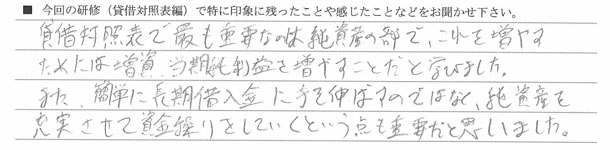 ■ 今回の研修（貸借対照表編）で特に印象に残ったことや感じたことなどをお聞かせ下さい。
貸借対照表で最も重要なのは純資産の部で、これを増やす
ためには増資、当期純利益を増やすことだと学びました。
また、簡単に長期借入金に手を伸ばすのではなく、純資産を
充実させて資金繰りをしていくという点も重要だと思いました。